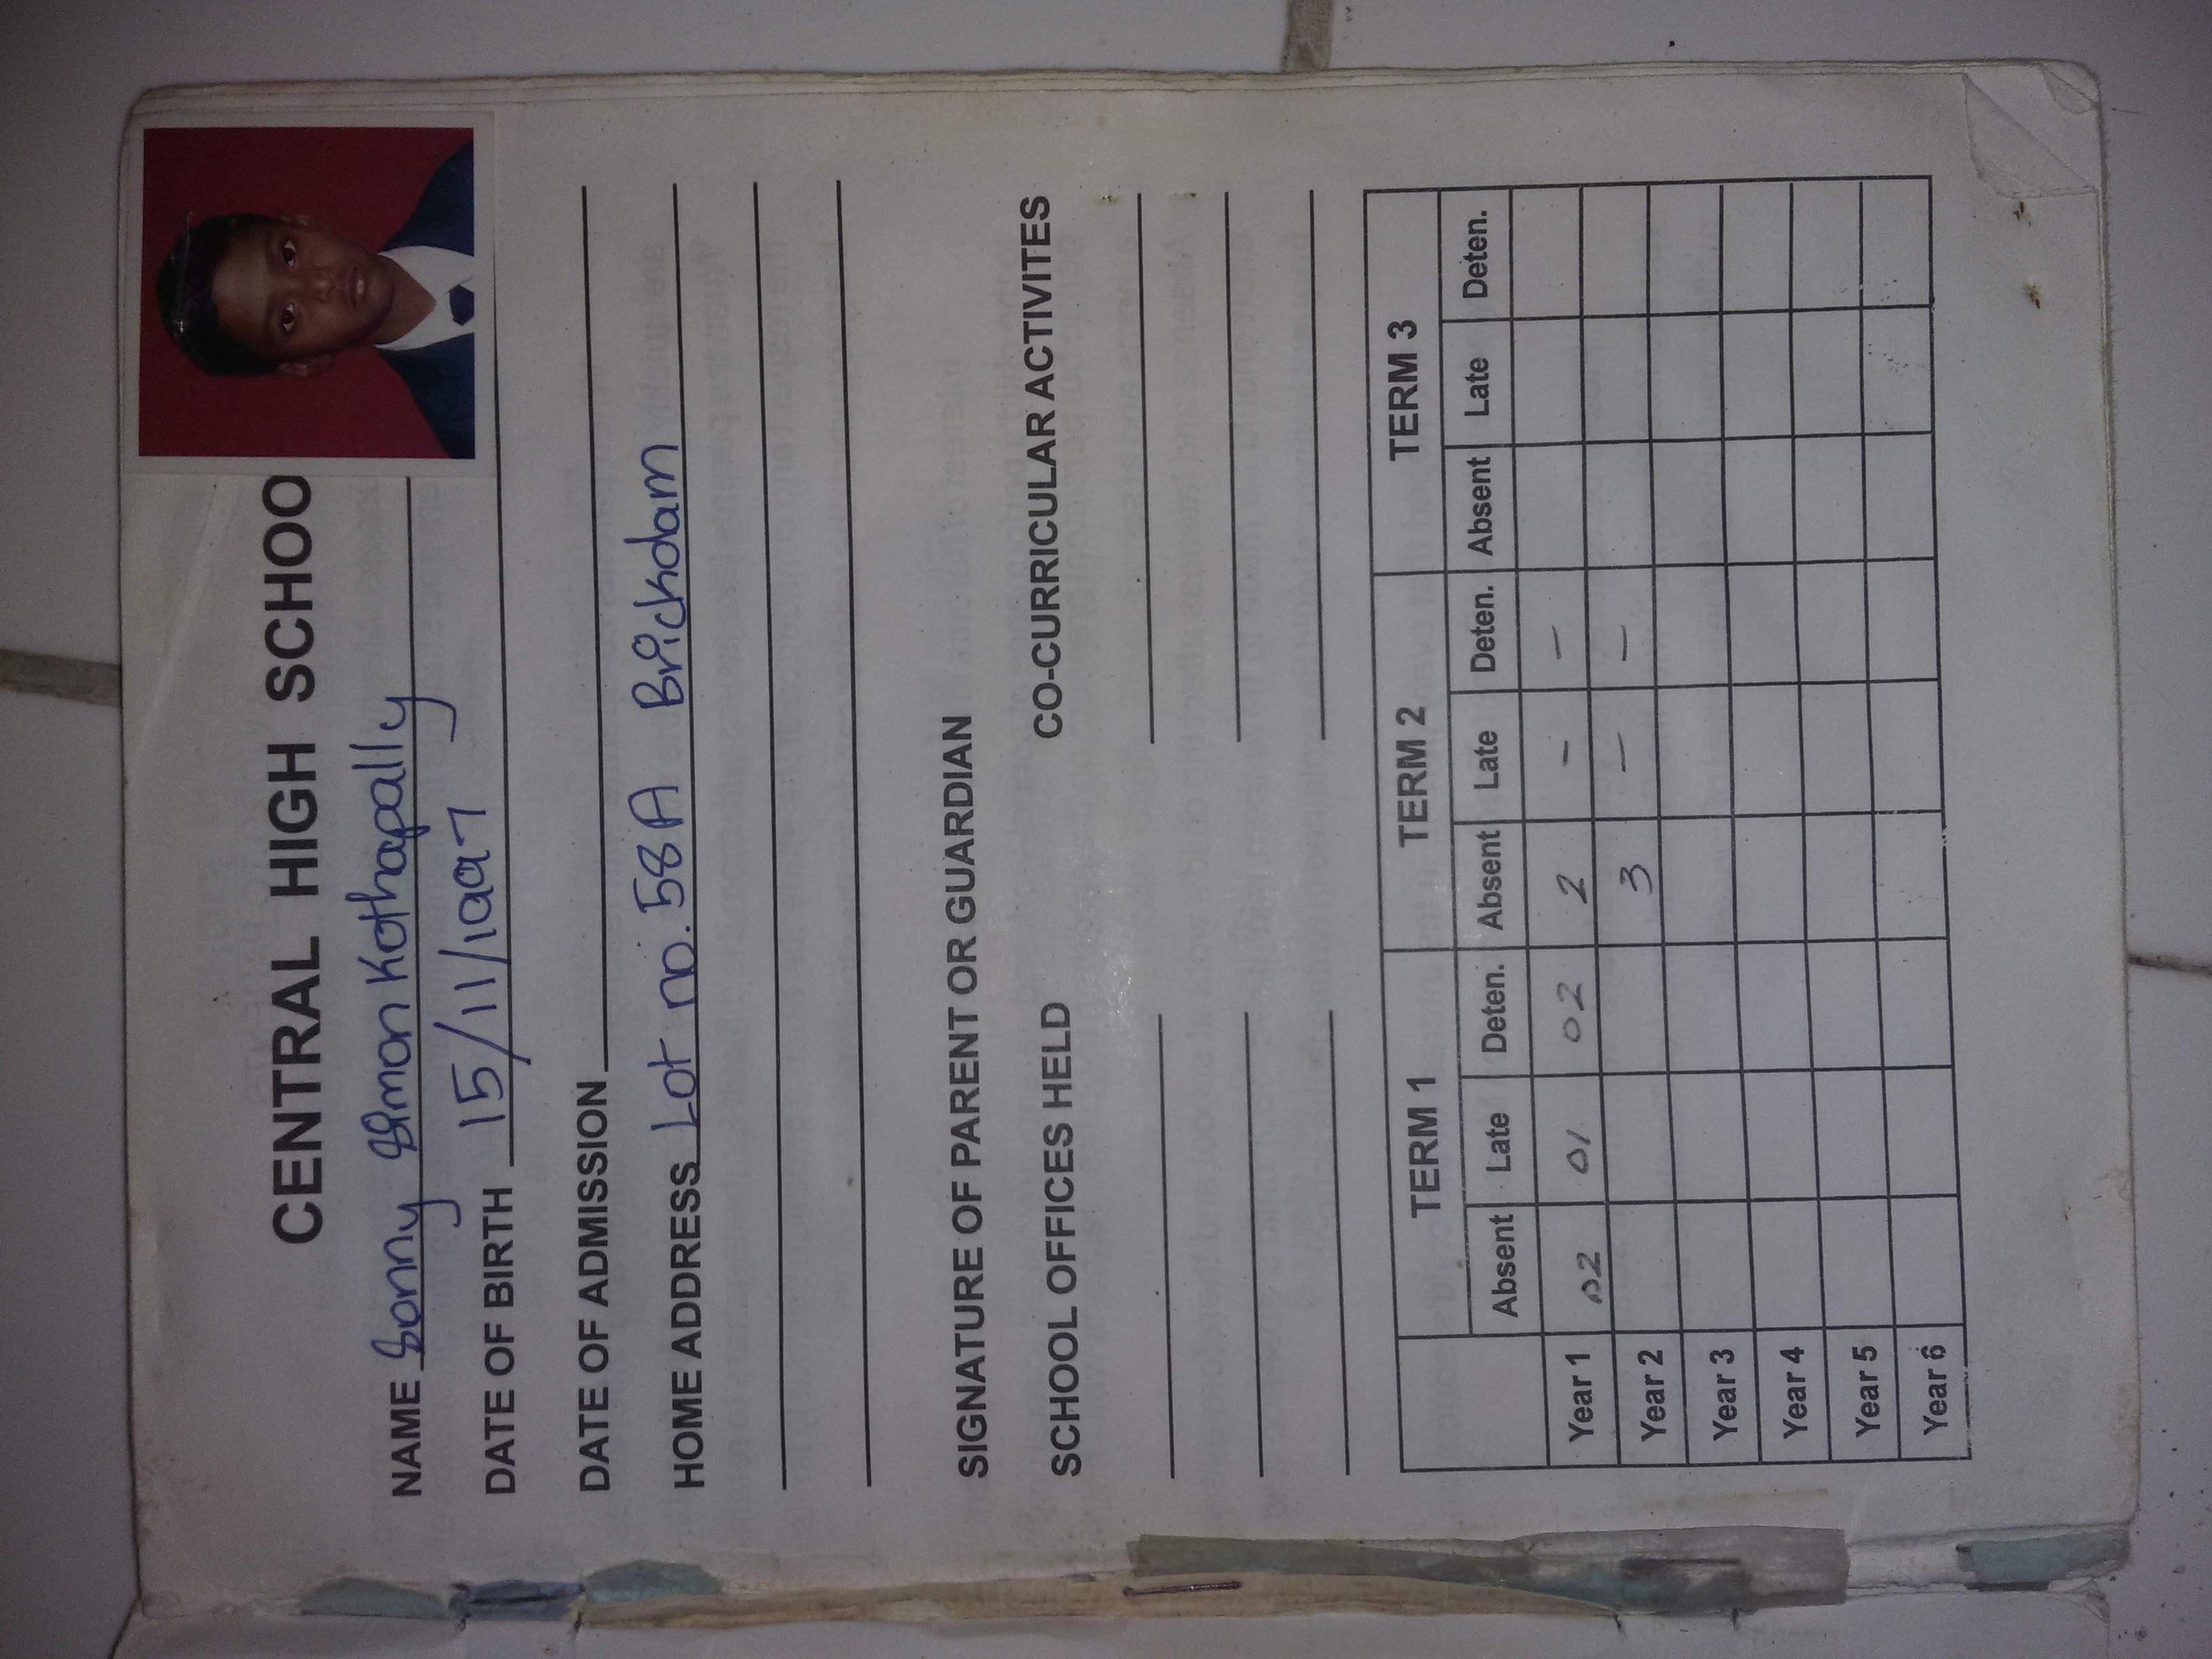 CENTRAL HIGH SCHOO
NAME Sonny Simon Kothapally
DATE OF BIRTH 15/11/1997
DATE OF ADMISSION
HOME ADDRESS Lot no. 58A Brickdam
SIGNATURE OF PARENT OR GUARDIAN
SCHOOL OFFICES HELD CO-CURRICULAR ACTIVITES
TERM 1 TERM 2 TERM 3
Absent Late Deten. Absent Late Deten. Absent Late Deten.
Year 1 02 01 02 2 - -
Year 2 3 - -
Year 3
Year 4
Year 5
Year 6